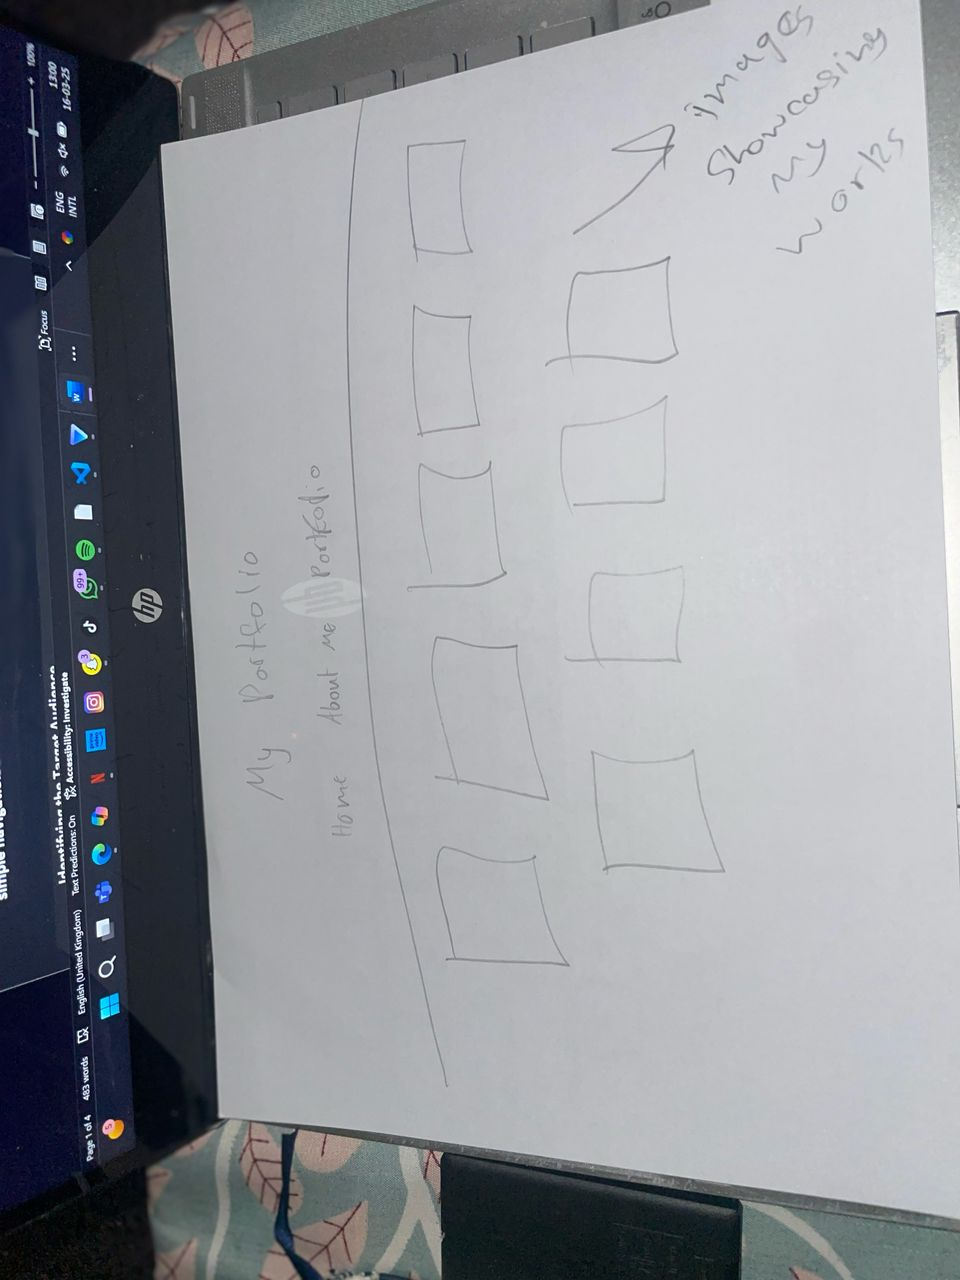 simple naviga
Identifying the Target Audience
Page 1 of 4 483 words English (United Kingdom) Text Predictions: On Accessibility: Investigate Focus 100%
5
3
99+
W
N
ENG
INTL
13:00
16-03-25
hp
My Portfolio
Home About me Portfodio
images
Showcasing
my
works